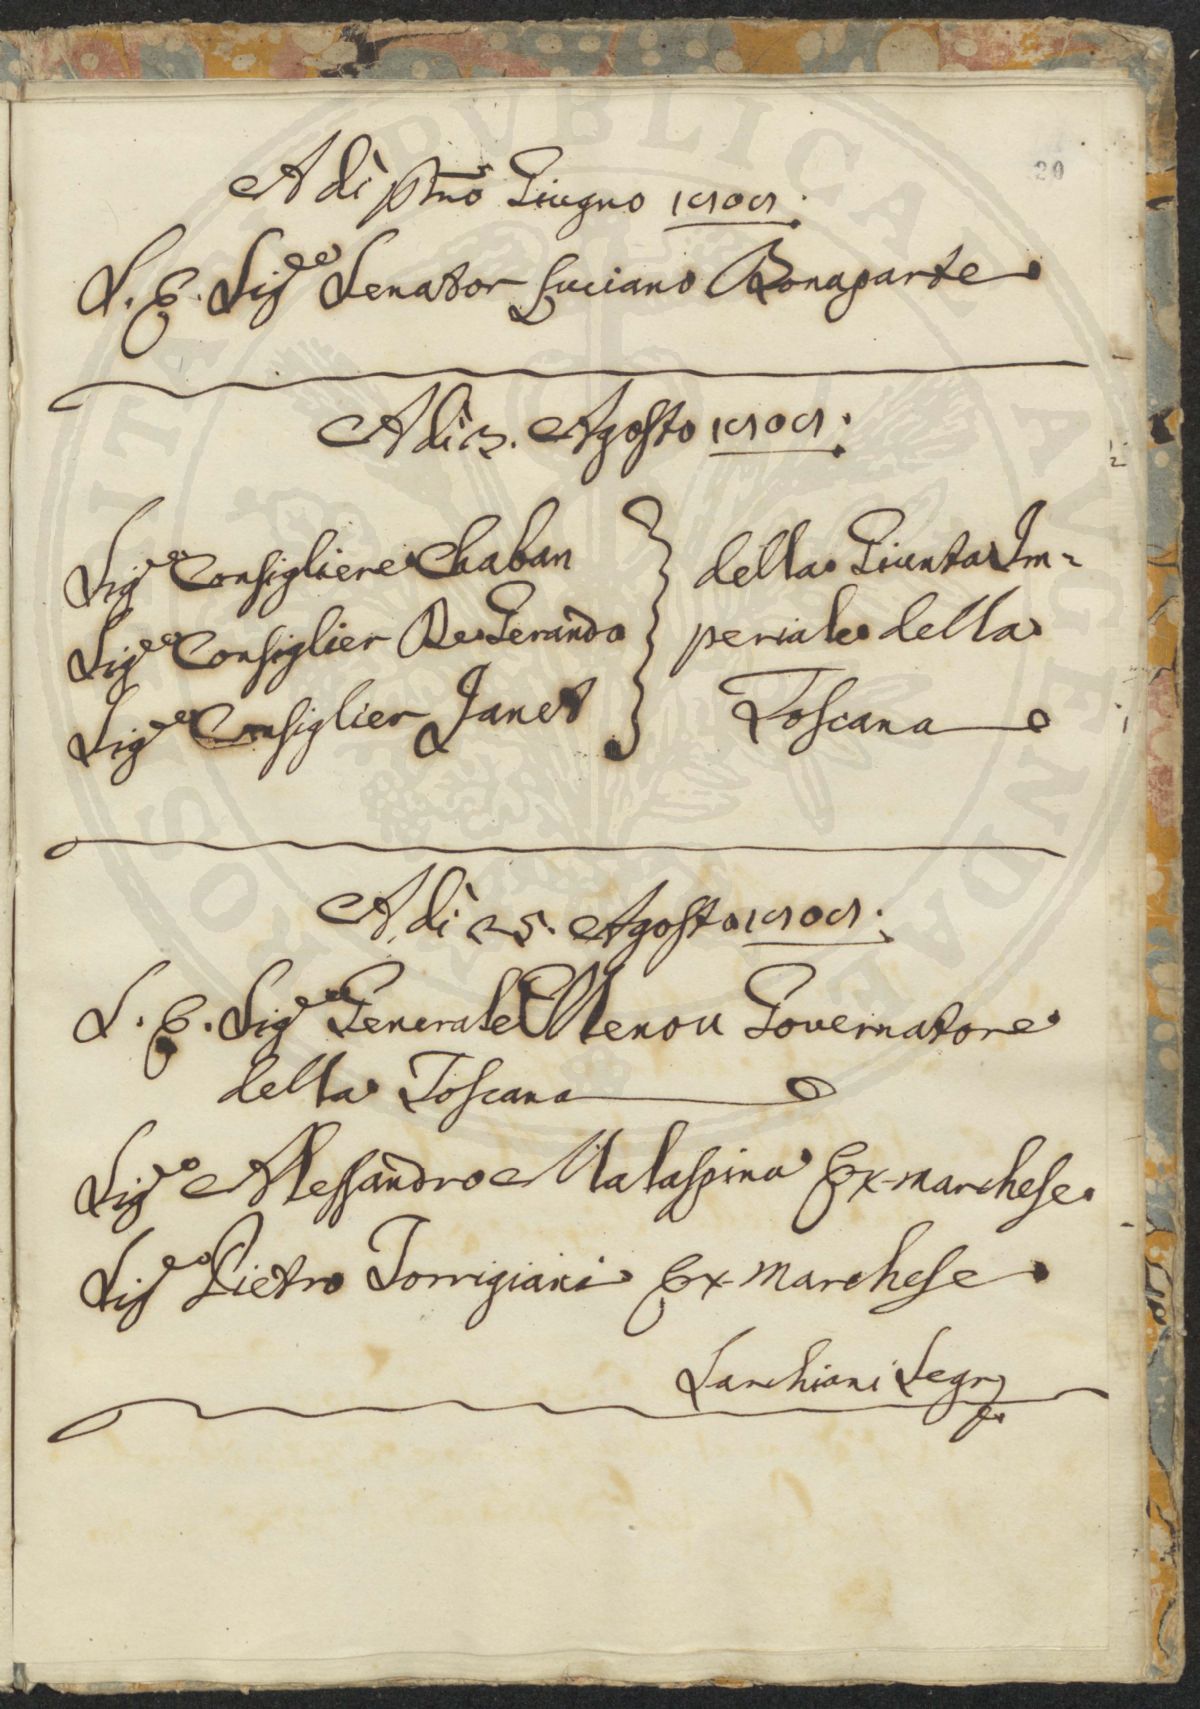 20
A dì pmo Giugno 1808.
S. E. Sig.e Senator Luciano Bonaparte
A dì 2. Agosto 1808.
Sig.e Consigliere Chaban
Sig.e Consiglier De Gerando
Sig.e Consiglier Janet
della Giunta Im=
periale della
Toscana
A dì 25. Agosto 1808.
S. E. Sig.e Generale Menou Governatore
della Toscana
Sig.e Alessandro Malaspina Ex-marchese
Sig.e Pietro Torrigiani Ex-marchese
Sarchiani Segr
PROSPERITATI PVBLICAE AVGENDAE